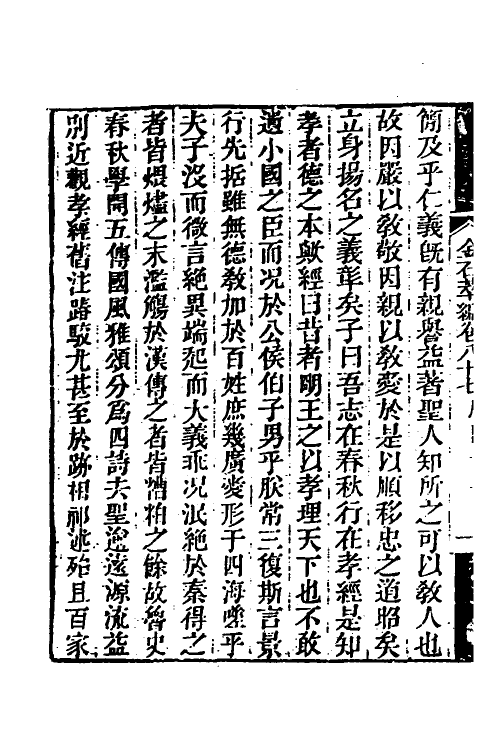 簡及乎仁義旣有親譽益著聖人知所之可以敎人也
故因嚴以敎敬因親以敎愛於是以順移忠之道昭矣
立身揚名之義彰矣子曰吾志在春秋行在孝經是知
孝者德之本歟經曰昔者明王之以孝理天下也不敢
遺小國之臣而況於公侯伯子男乎朕常三復斯言景
行先㧞雖無德敎加於百姓庶幾廣愛形于四海嗟乎
夫子沒而微言絕異端起而大義乖況泯絕於秦得之
者皆煨燼之末濫觴於漢傳之者皆糟粕之餘故魯史
春秋學開五傳國風雅頌分爲四詩去聖逾遠源流益
別近觀孝經舊注踳駮尤甚至於跡相祖述殆且百家
金石萃編卷八十七